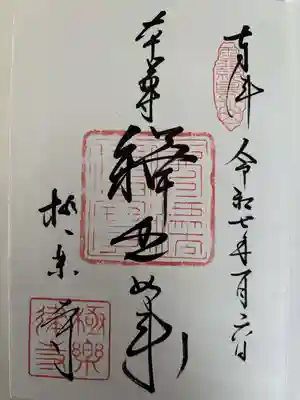 奉拝 令和七年一月六日
本尊 釋迦如来
極楽寺
極樂律寺